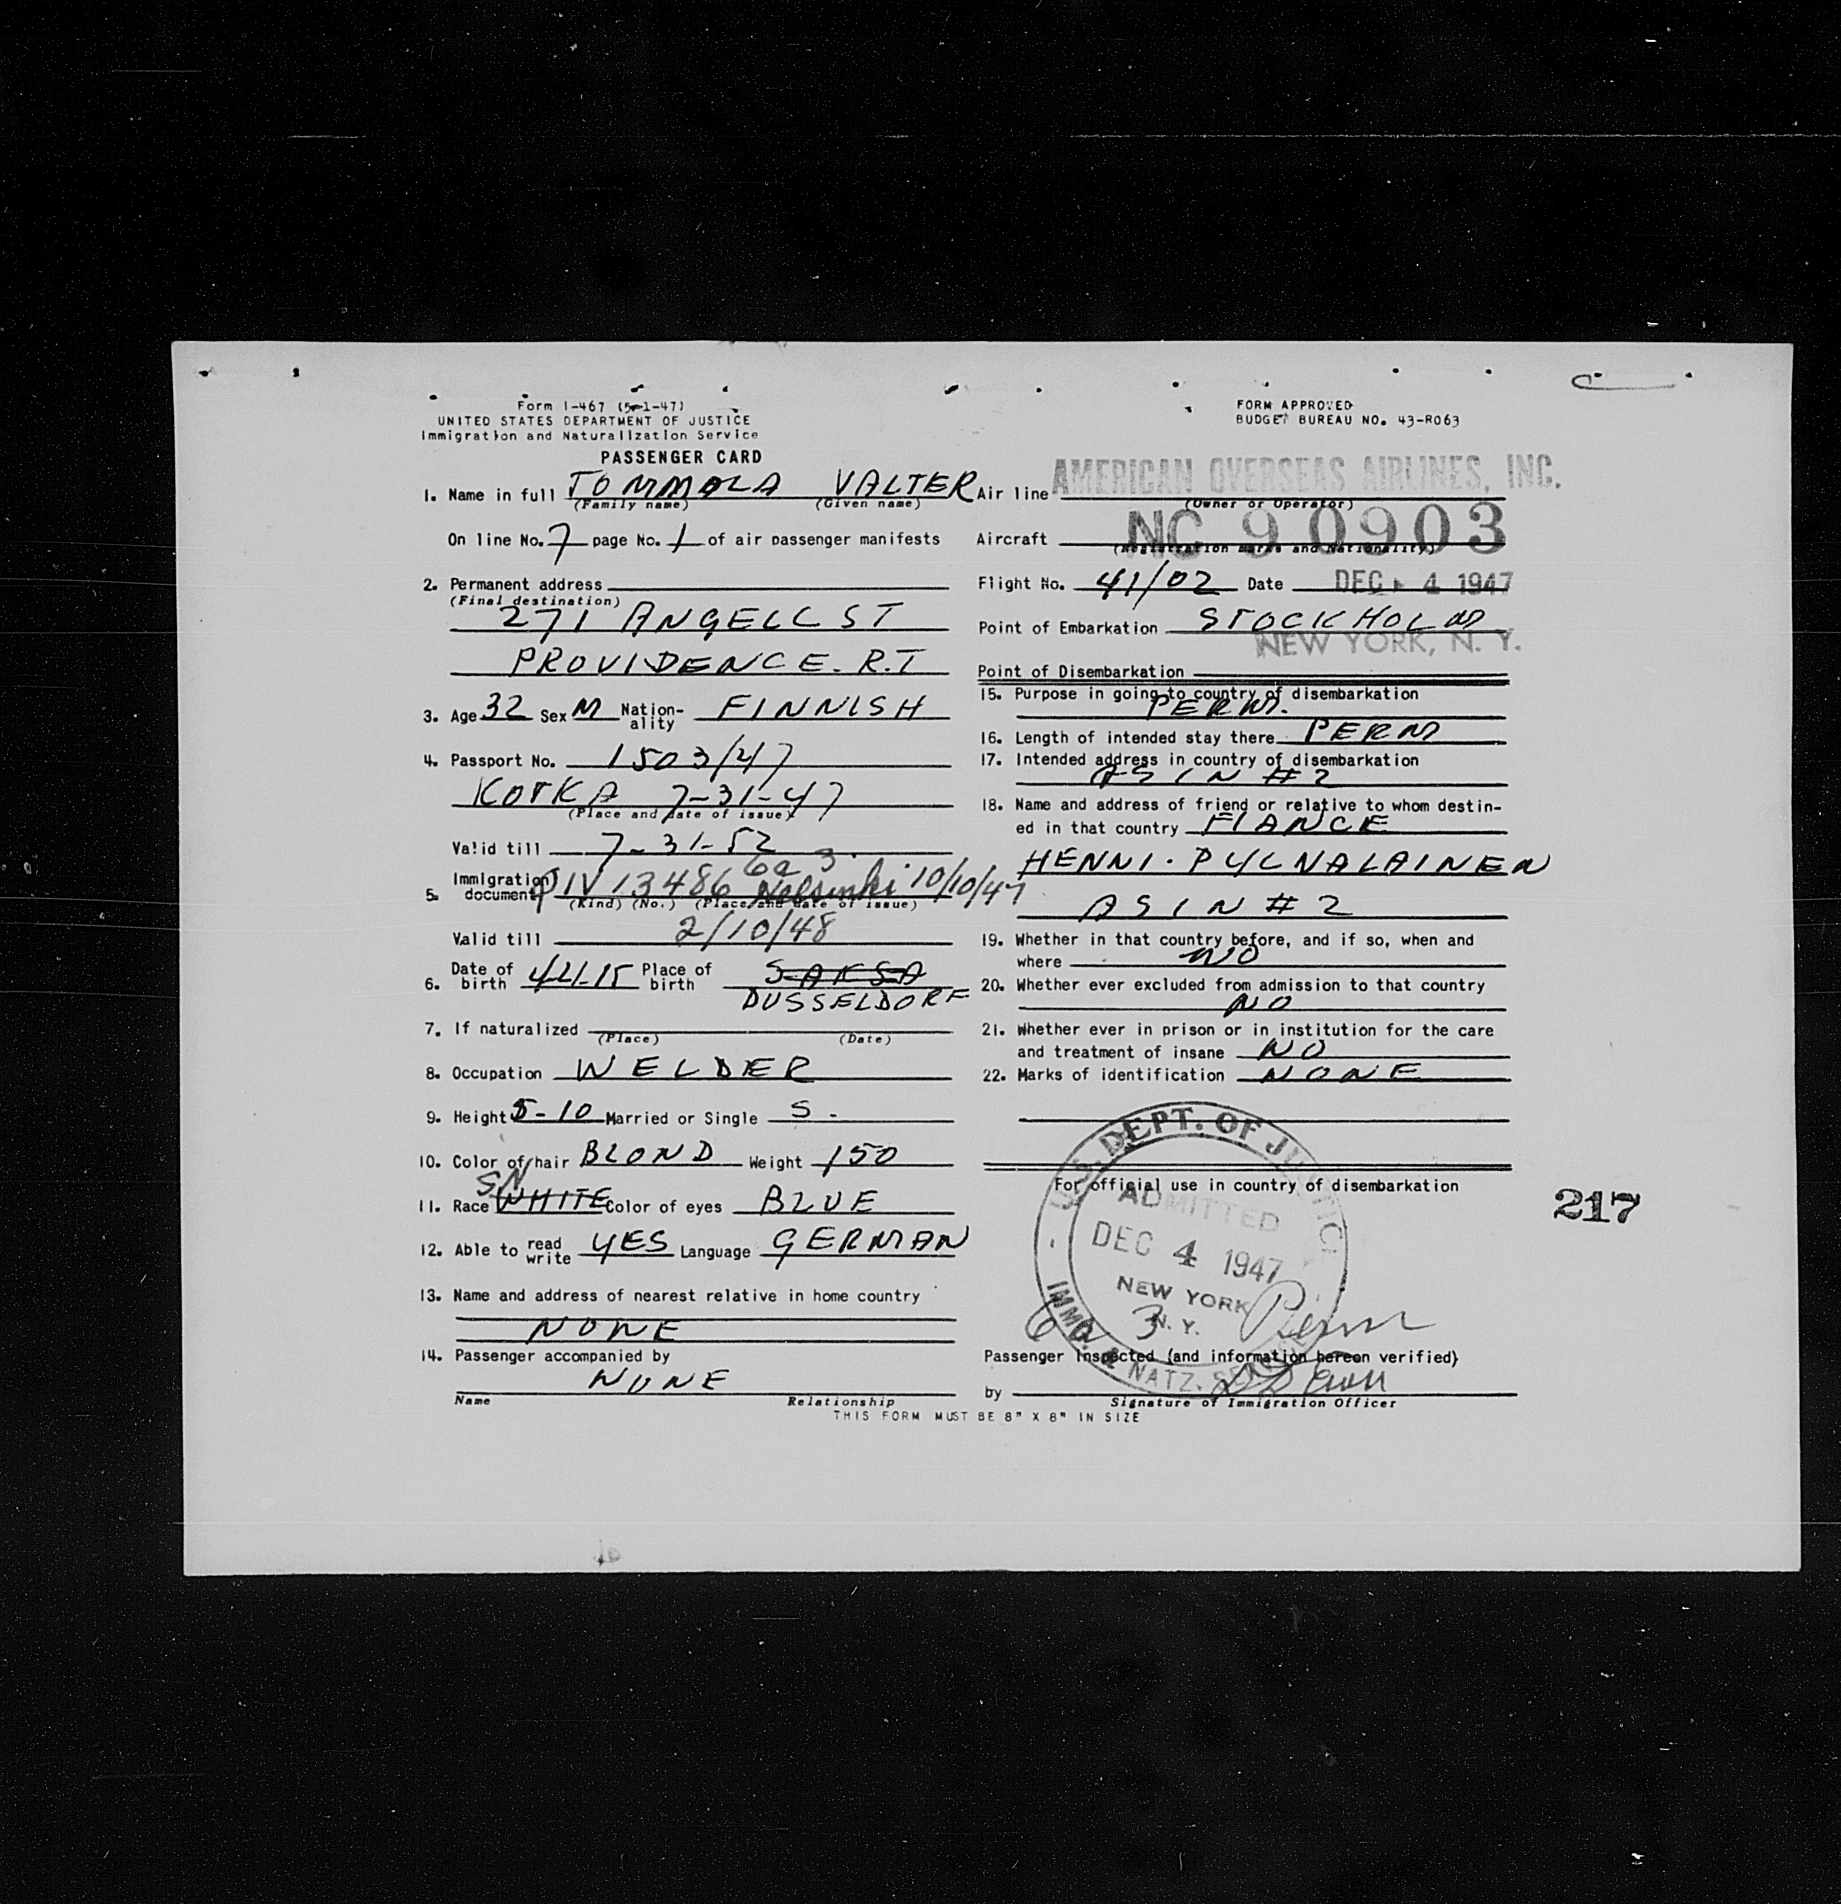 Form I-467 (5-1-47)
UNITED STATES DEPARTMENT OF JUSTICE
Immigration and Naturalization Service
PASSENGER CARD
FORM APPROVED
BUDGET BUREAU NO. 43-R063
1. Name in full TOMMOLA VALTER
(Family name) (Given name)
On line No. 7 page No. 1 of air passenger manifests
2. Permanent address
(Final destination)
271 ANGELL ST
PROVIDENCE. R.I
3. Age 32 Sex M Nation-ality FINNISH
4. Passport No. 1503/47
KOTKA 7-31-47
(Place and date of issue)
Valid till 7-31-52
6a 3.
5. Immigration document QIV 13486 Helsinki 10/10/47
(Kind) (No.) (Place and date of issue)
Valid till 2/10/48
6. Date of birth Place of birth SAKSA
DUSSELDORF
7. If naturalized
(Place) (Date)
8. Occupation WELDER
9. Height 5-10 Married or Single S.
10. Color of hair BLOND Weight 150
SN
11. Race WHITE Color of eyes BLUE
12. Able to read write YES Language GERMAN
13. Name and address of nearest relative in home country
NONE
14. Passenger accompanied by
NONE
Name Relationship
Air line AMERICAN OVERSEAS AIRLINES, INC.
(Owner or Operator)
Aircraft NC 90903
(Registration marks and Nationality)
Flight No. 41/02 Date DEC 4 1947
Point of Embarkation STOCKHOLM
NEW YORK, N. Y.
Point of Disembarkation
15. Purpose in going to country of disembarkation
PERM.
16. Length of intended stay there PERM
17. Intended address in country of disembarkation
AS IN #2
18. Name and address of friend or relative to whom destin-
ed in that country FIANCE
HENNI. PYLNALAINEN
AS IN #2
19. Whether in that country before, and if so, when and
where NO
20. Whether ever excluded from admission to that country
NO
21. Whether ever in prison or in institution for the care
and treatment of insane NO
22. Marks of identification NONE
For official use in country of disembarkation
U.S. DEPT. OF JUSTICE
ADMITTED
DEC 4 1947
NEW YORK
N. Y.
IMMG. & NATZ. SERVICE
6a 3 Perm
217
Passenger Inspected (and information hereon verified)
by
Signature of Immigration Officer
THIS FORM MUST BE 8" X 8" IN SIZE